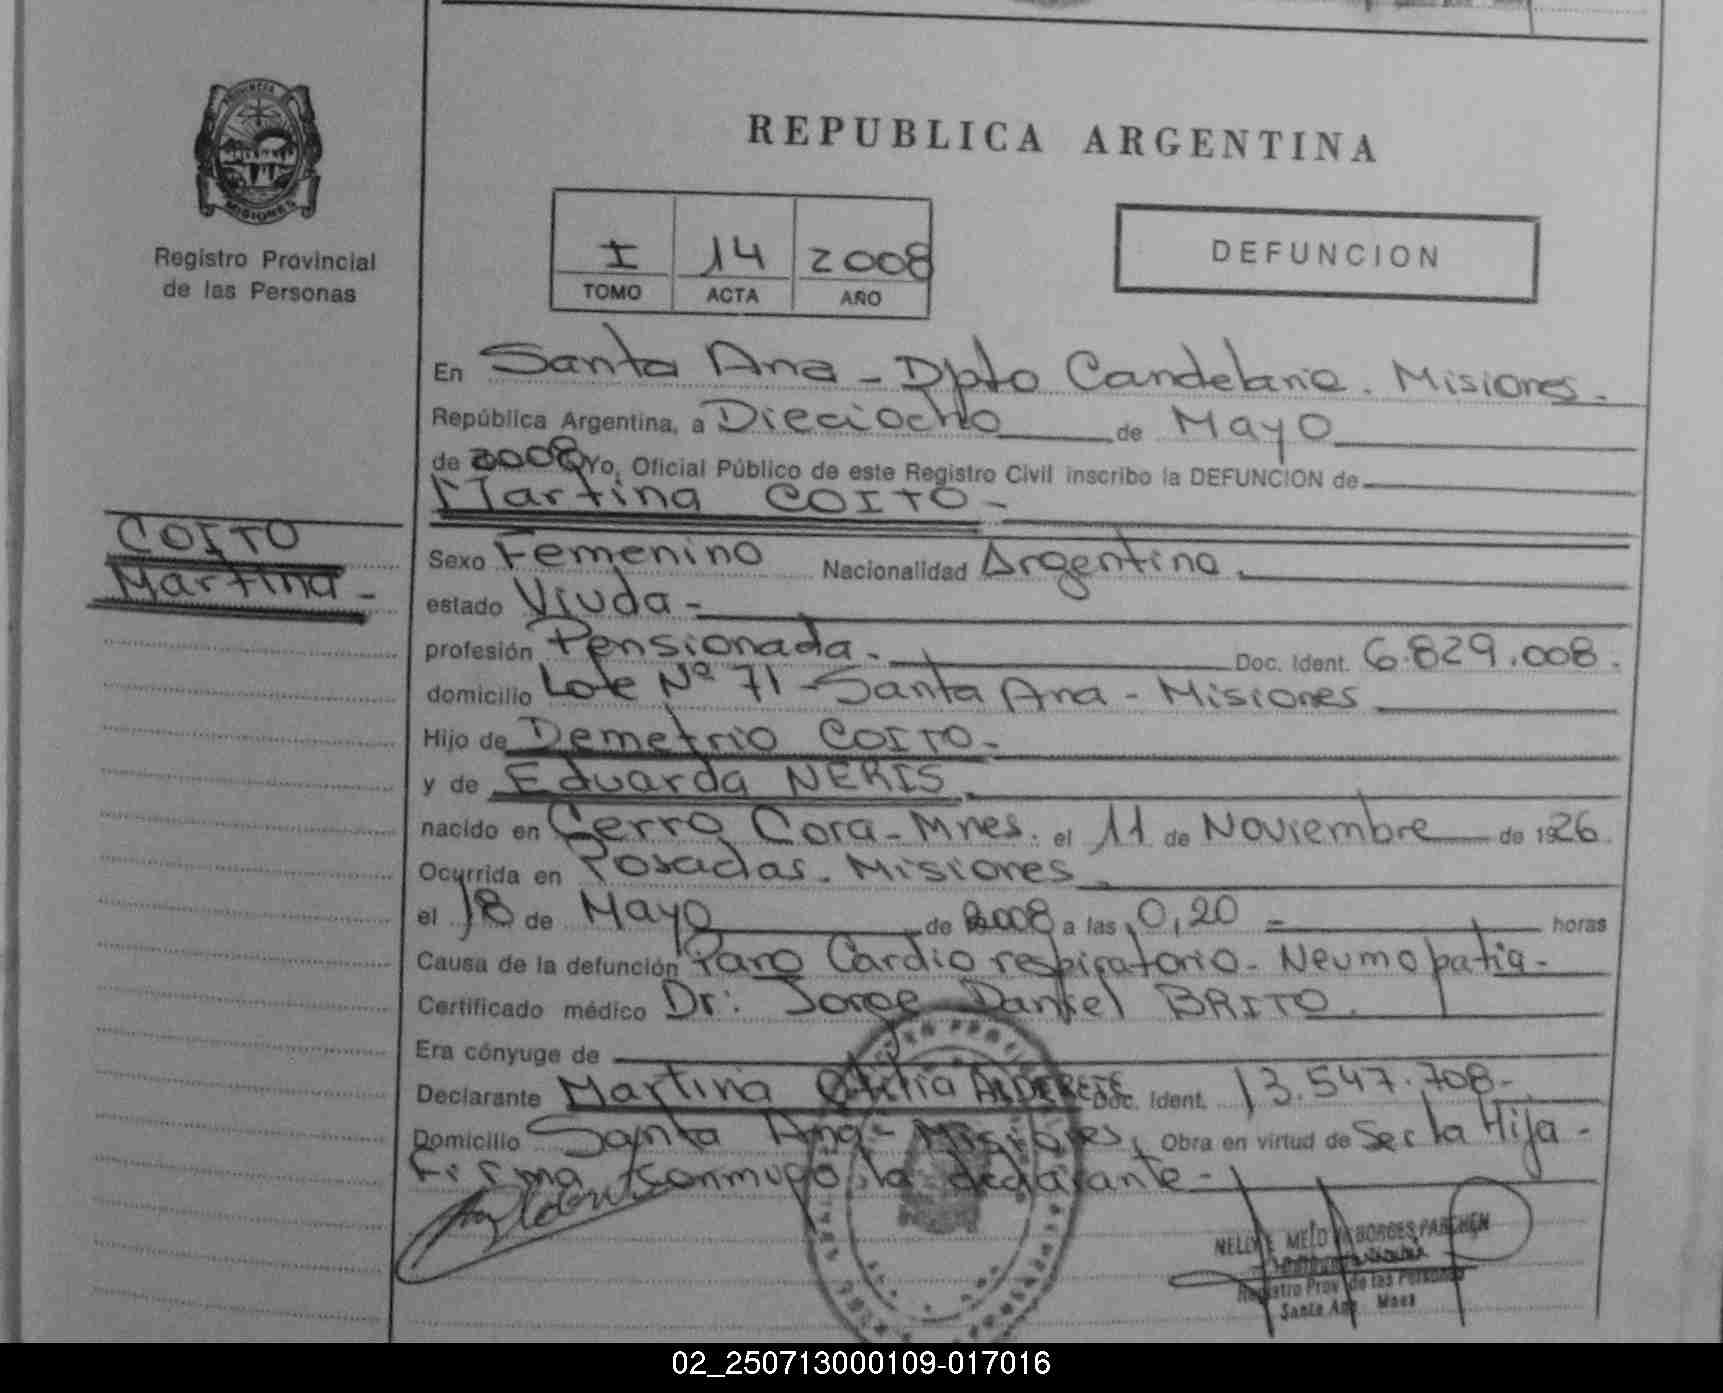 PROVINCIA DE
MISIONES
Registro Provincial
de las Personas
REPUBLICA ARGENTINA
I 14 2008
TOMO ACTA AÑO
DEFUNCION
En Santa Ana - Dpto Candelaria. Misiones.
República Argentina, a Dieciocho de Mayo
de 2008 Yo, Oficial Público de este Registro Civil inscribo la DEFUNCION de
Martina COITO -
COITO
Martina -
Sexo Femenino Nacionalidad Argentina.
estado Viuda -
profesión Pensionada. Doc. Ident. 6.829.008.
domicilio Lote Nº 71 - Santa Ana - Misiones
Hijo de Demetrio COITO -
y de Eduarda NERIS.
nacido en Cerro Cora - Mnes. el 11 de Noviembre de 1926.
Ocurrida en Posadas. Misiones.
el 18 de Mayo de 2008 a las 0,20 - horas
Causa de la defunción Paro Cardio respiratorio - Neumopatia -
Certificado médico Dr: Jorge Daniel BRITO.
Era cónyuge de
Declarante Martina Otilia ALDERETE Doc. Ident. 13.547.708 -
Domicilio Santa Ana - Misiones, Obra en virtud de Ser la Hija -
Firma conmigo la declarante -
NELLY E. MELO BORGES PARCHEN
Registro Prov. de las Personas
Santa Ana Mnes
02_250713000109-017016